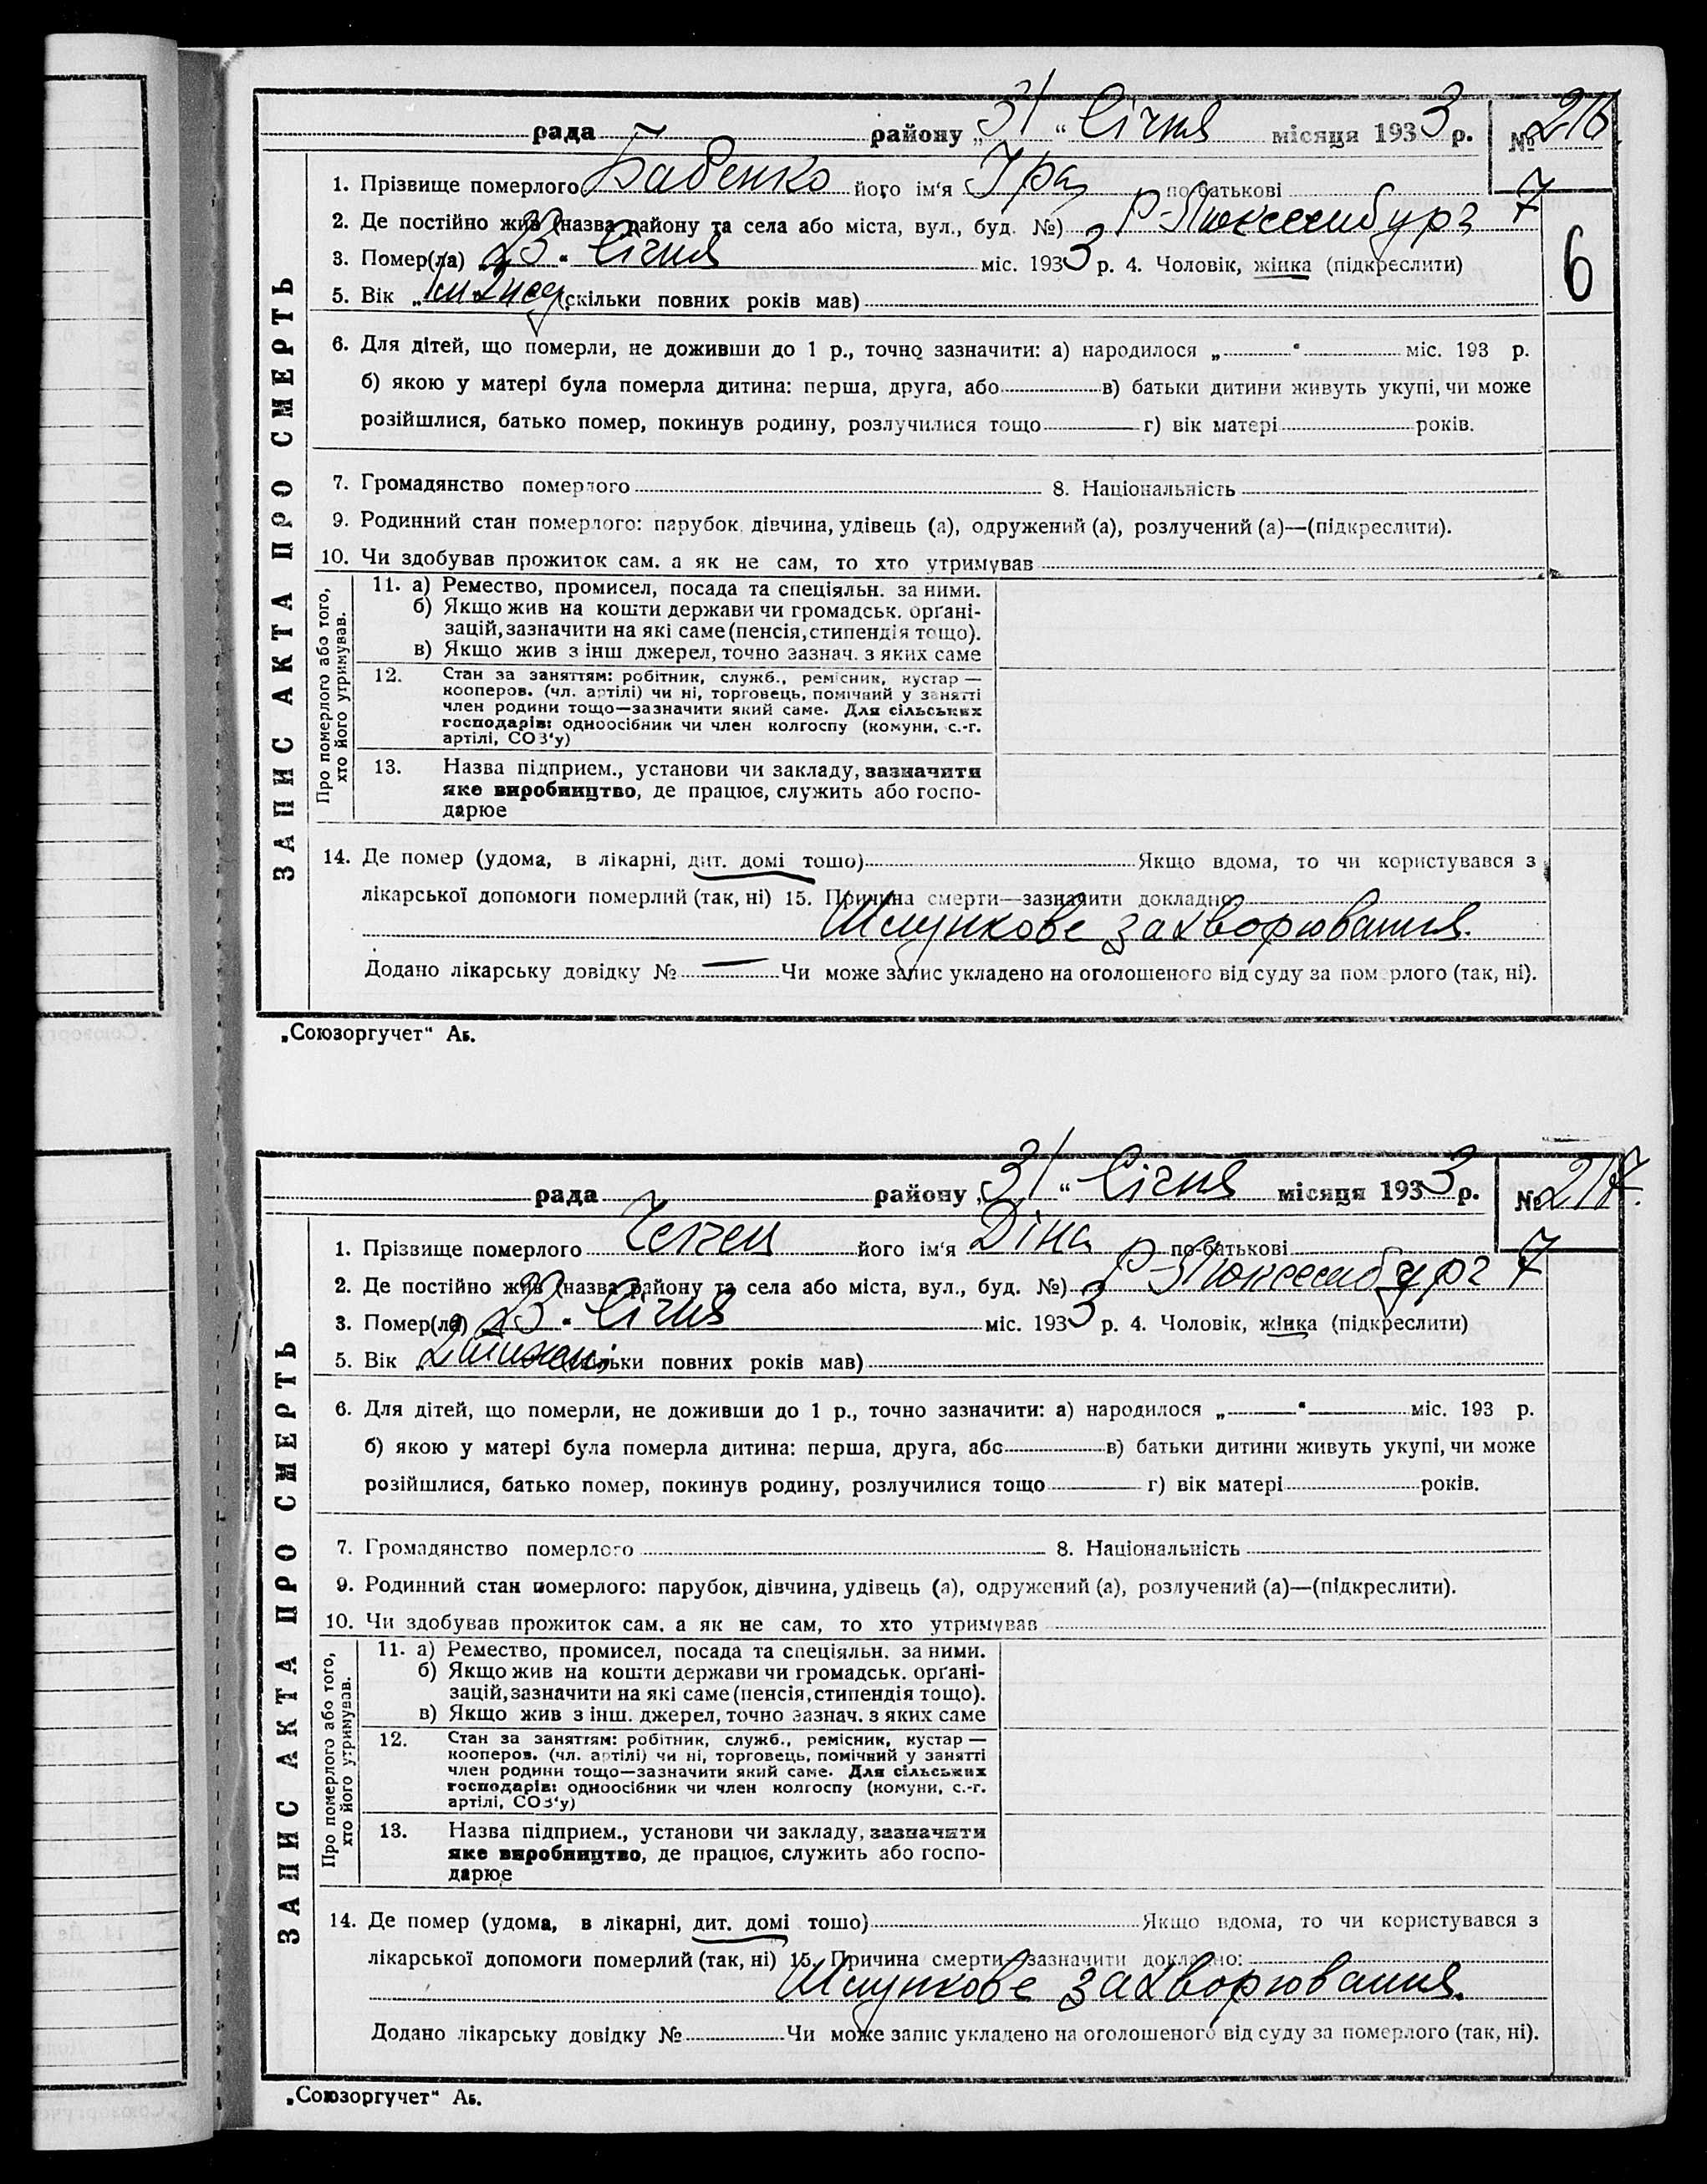 рада района „31“ Січня місяця 1933 р. № 216
1. Прізвище померлого Бабенко його ім'я Іра по батькові
2. Де постійно жив (назва району та села або міста, вул., буд. №) Р-Люксембург 7
3. Помер(ла) „23“ Січня міс. 1933 р. 4. Чоловік, жінка (підкреслити)
6
5. Вік „ (скільки повних років мав)
6. Для дітей, що померли, не доживши до 1 р., точно зазначити: а) народилося „ “ міс. 193 р.
б) якою у матері була померла дитина: перша, друга, або в) батьки дитини живуть укупі, чи може
розійшлися, батько помер, покинув родину, розлучилися тощо г) вік матері років.
7. Громадянство померлого 8. Національність
9. Родинний стан померлого: парубок, дівчина, удівець (а), одружений (а), розлучений (а)—(підкреслити).
10. Чи здобував прожиток сам. а як не сам, то хто утримував
Про померлого або того, хто його утримував.
11. а) Ремество, промисел, посада та спеціяльн. за ними.
б) Якщо жив на кошти держави чи громадськ. орґані-
зацій, зазначити на які саме (пенсія, стипендія тощо).
в) Якщо жив з інш джерел, точно зазнач. з яких саме
12. Стан за заняттям: робітник, служб., ремісник, кустар —
кооперов. (чл. артілі) чи ні, торговець, помічний у занятті
член родини тощо—зазначити який саме. Для сільських
господарів: одноосібник чи член колгоспу (комуни, с.-г.
артілі, СОЗ'у)
13. Назва підприєм., установи чи закладу, зазначити
яке виробництво, де працює, служить або госпо-
дарює
14. Де помер (удома, в лікарні, дит. домі тощо) Якщо вдома, то чи користувався з
лікарської допомоги померлий (так, ні) 15. Причина смерти—зазначити докладно:
Шлункове захворювання.
Додано лікарську довідку № — Чи може запис укладено на оголошеного від суду за померлого (так, ні).
ЗАПИС АКТА ПРО СМЕРТЬ
„Союзоргучет“ Аб.
рада району „31“ Січня місяця 1933 р. № 217
1. Прізвище померлого його ім'я Діна по-батькові
2. Де постійно жив (назва району та села або міста, вул., буд. №) Р-Люксембург 7
3. Помер(ла) „23“ Січня міс. 1933 р. 4. Чоловік, жінка (підкреслити)
5. Вік „2 тижні (скільки повних років мав)
6. Для дітей, що померли, не доживши до 1 р., точно зазначити: а) народилося „ “ міс. 193 р.
б) якою у матері була померла дитина: перша, друга, або в) батьки дитини живуть укупі, чи може
розійшлися, батько помер, покинув родину, розлучилися тощо г) вік матері років.
7. Громадянство померлого 8. Національність
9. Родинний стан померлого: парубок, дівчина, удівець (а), одружений (а), розлучений (а)—(підкреслити).
10. Чи здобував прожиток сам. а як не сам, то хто утримував
Про померлого або того, хто його утримував.
11. а) Ремество, промисел, посада та спеціяльн. за ними.
б) Якщо жив на кошти держави чи громадськ. орґані-
зацій, зазначити на які саме (пенсія, стипендія тощо).
в) Якщо жив з інш. джерел, точно зазнач. з яких саме
12. Стан за заняттям: робітник, служб., ремісник, кустар —
кооперов. (чл. артілі) чи ні, торговець, помічний у занятті
член родини тощо—зазначити який саме. Для сільських
господарів: одноосібник чи член колгоспу (комуни, с.-г.
артілі, СОЗ'у)
13. Назва підприєм., установи чи закладу, зазначити
яке виробництво, де працює, служить або госпо-
дарює
14. Де помер (удома, в лікарні, дит. домі тощо) Якщо вдома, то чи користувався з
лікарської допомоги померлий (так, ні) 15. Причина смерти—зазначити докладно:
Шлункове захворювання.
Додано лікарську довідку № Чи може запис укладено на оголошеного від суду за померлого (так, ні).
ЗАПИС АКТА ПРО СМЕРТЬ
„Союзоргучет“ Аб.